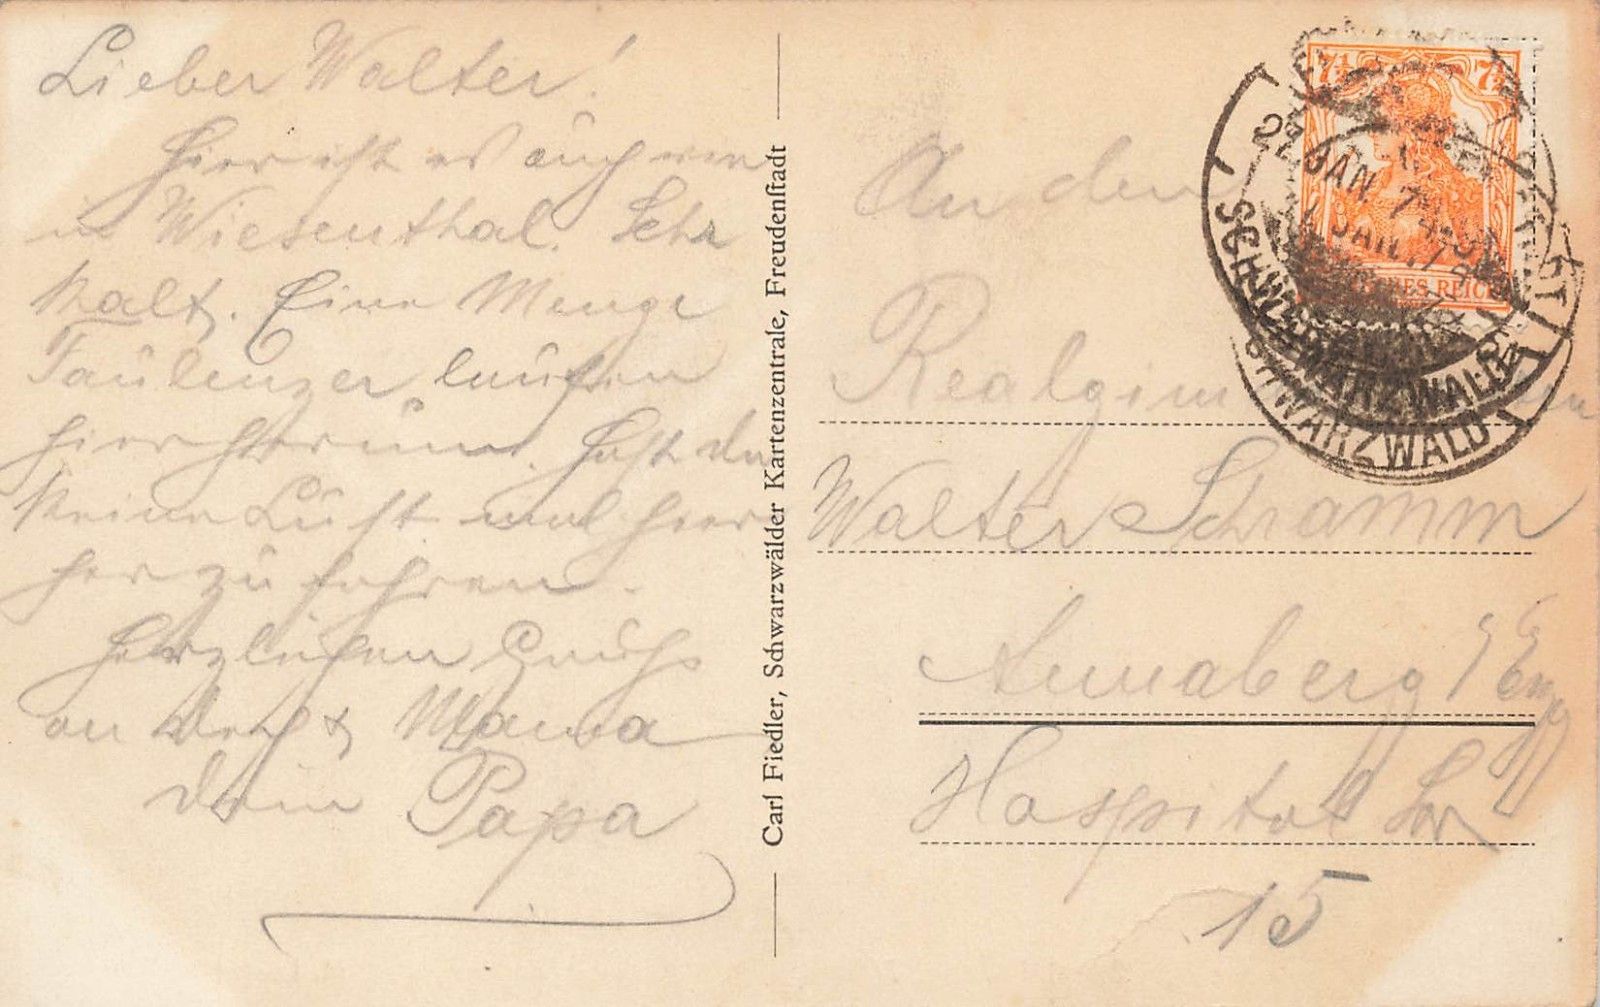 Lieber Walter!
Hier ist es auch wie
in Wiesenthal. Sehr
kalt. Eine Menge
Faulenzer laufen
hier herum. Hast du
keine Lust mal hier
her zu fahren.
Herzlichen Gruß
an Mama
dein Papa
Carl Fiedler, Schwarzwälder Kartenzentrale, Freudenstadt
7½ 7½
DEUTSCHES REICH
22. JAN. 17
SCHWARZWALD
SCHWARZWALD
An den
Walter Schramm
Annaberg i/ Erzg
Hospital Str
15